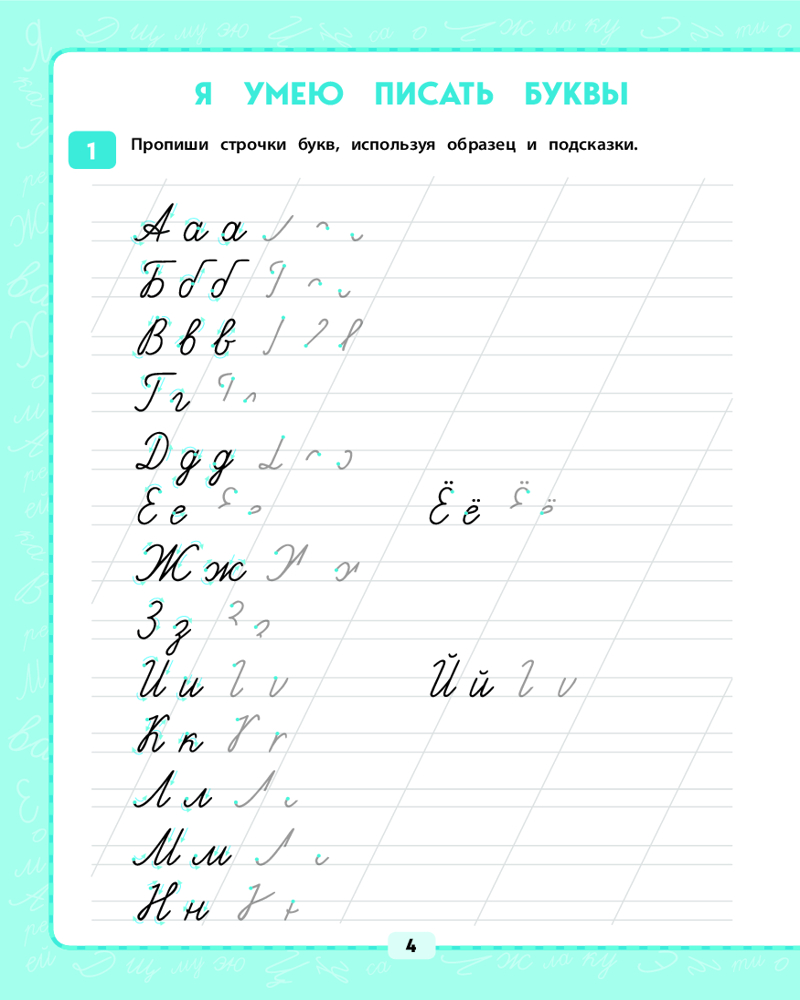 Я УМЕЮ ПИСАТЬ БУКВЫ
1 Пропиши строчки букв, используя образец и подсказки.
А а а
Б б б
В в в
Г г
Д д д
Е е Ё ё
Ж ж
З з
И и Й й
К к
Л л
М м
Н н
4